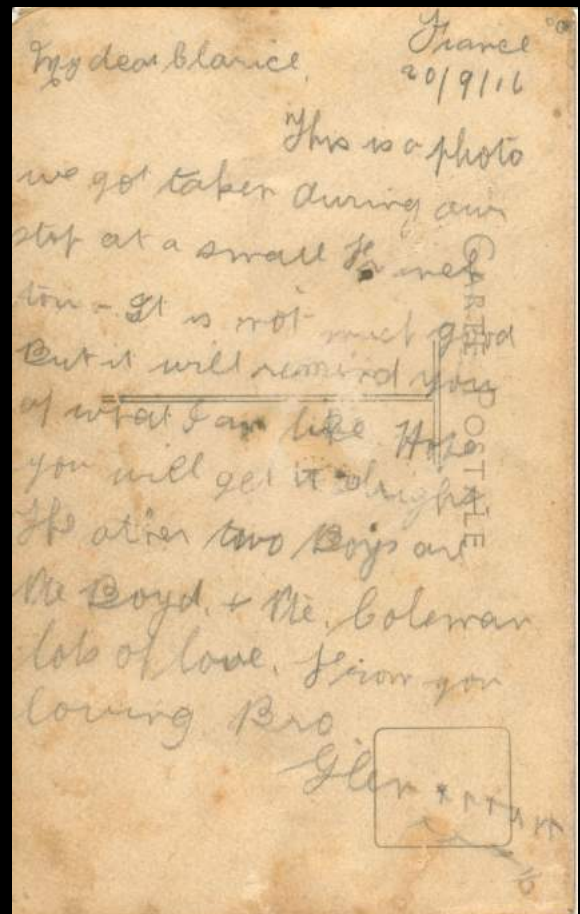 France
My dear Clarice. 20/9/16
This is a photo
we got taken during our
stop at a small French
town - It is not much good
But it will remind you
of what I am like. Hope
you will get it alright
The other two Boys are
Pte Boyd. & Pte. Coleman
lots of love. From you
loving Bro
Glen xxxxxx
CARTE POSTALE